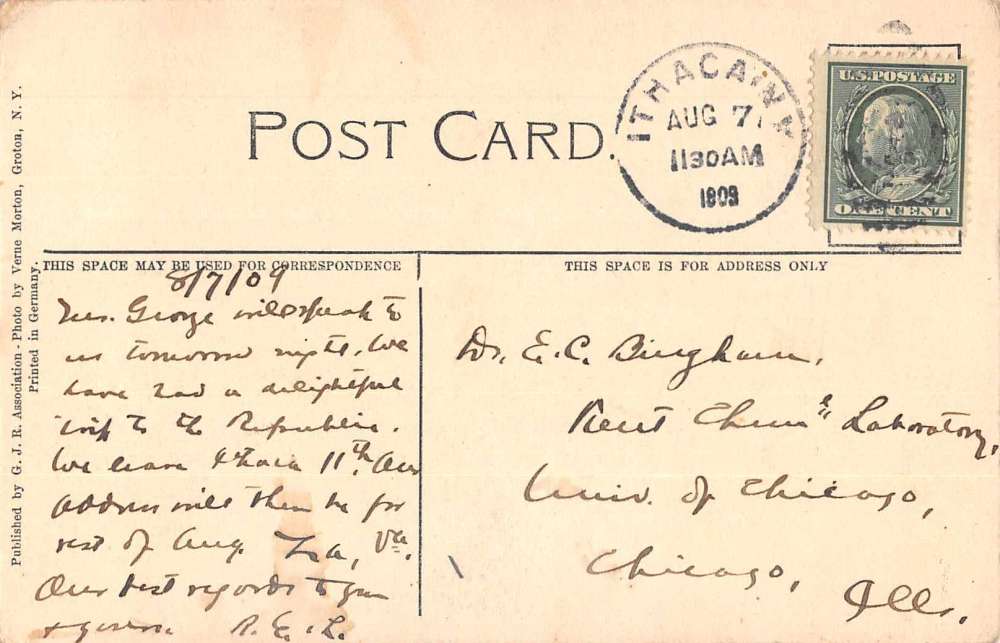 POST CARD.
ITHACA, N.Y.
AUG 7
1130AM
1909
U.S. POSTAGE
ONE CENT
Published by G. J. R. Association - Photo by Verne Morton, Groton, N. Y.
Printed in Germany.
THIS SPACE MAY BE USED FOR CORRESPONDENCE
8/7/09
Mr. George will speak to
us tomorrow night. We
have had a delightful
trip to the Republic.
We leave Ithaca 11th. Our
address will then be for
rest of Aug. Ira, Va.
Our best regards to you
& yours. R. E. L.
THIS SPACE IS FOR ADDRESS ONLY
Dr. E. C. Bingham,
Kent Chem'l Laboratory,
Univ. of Chicago,
Chicago,
Ills.